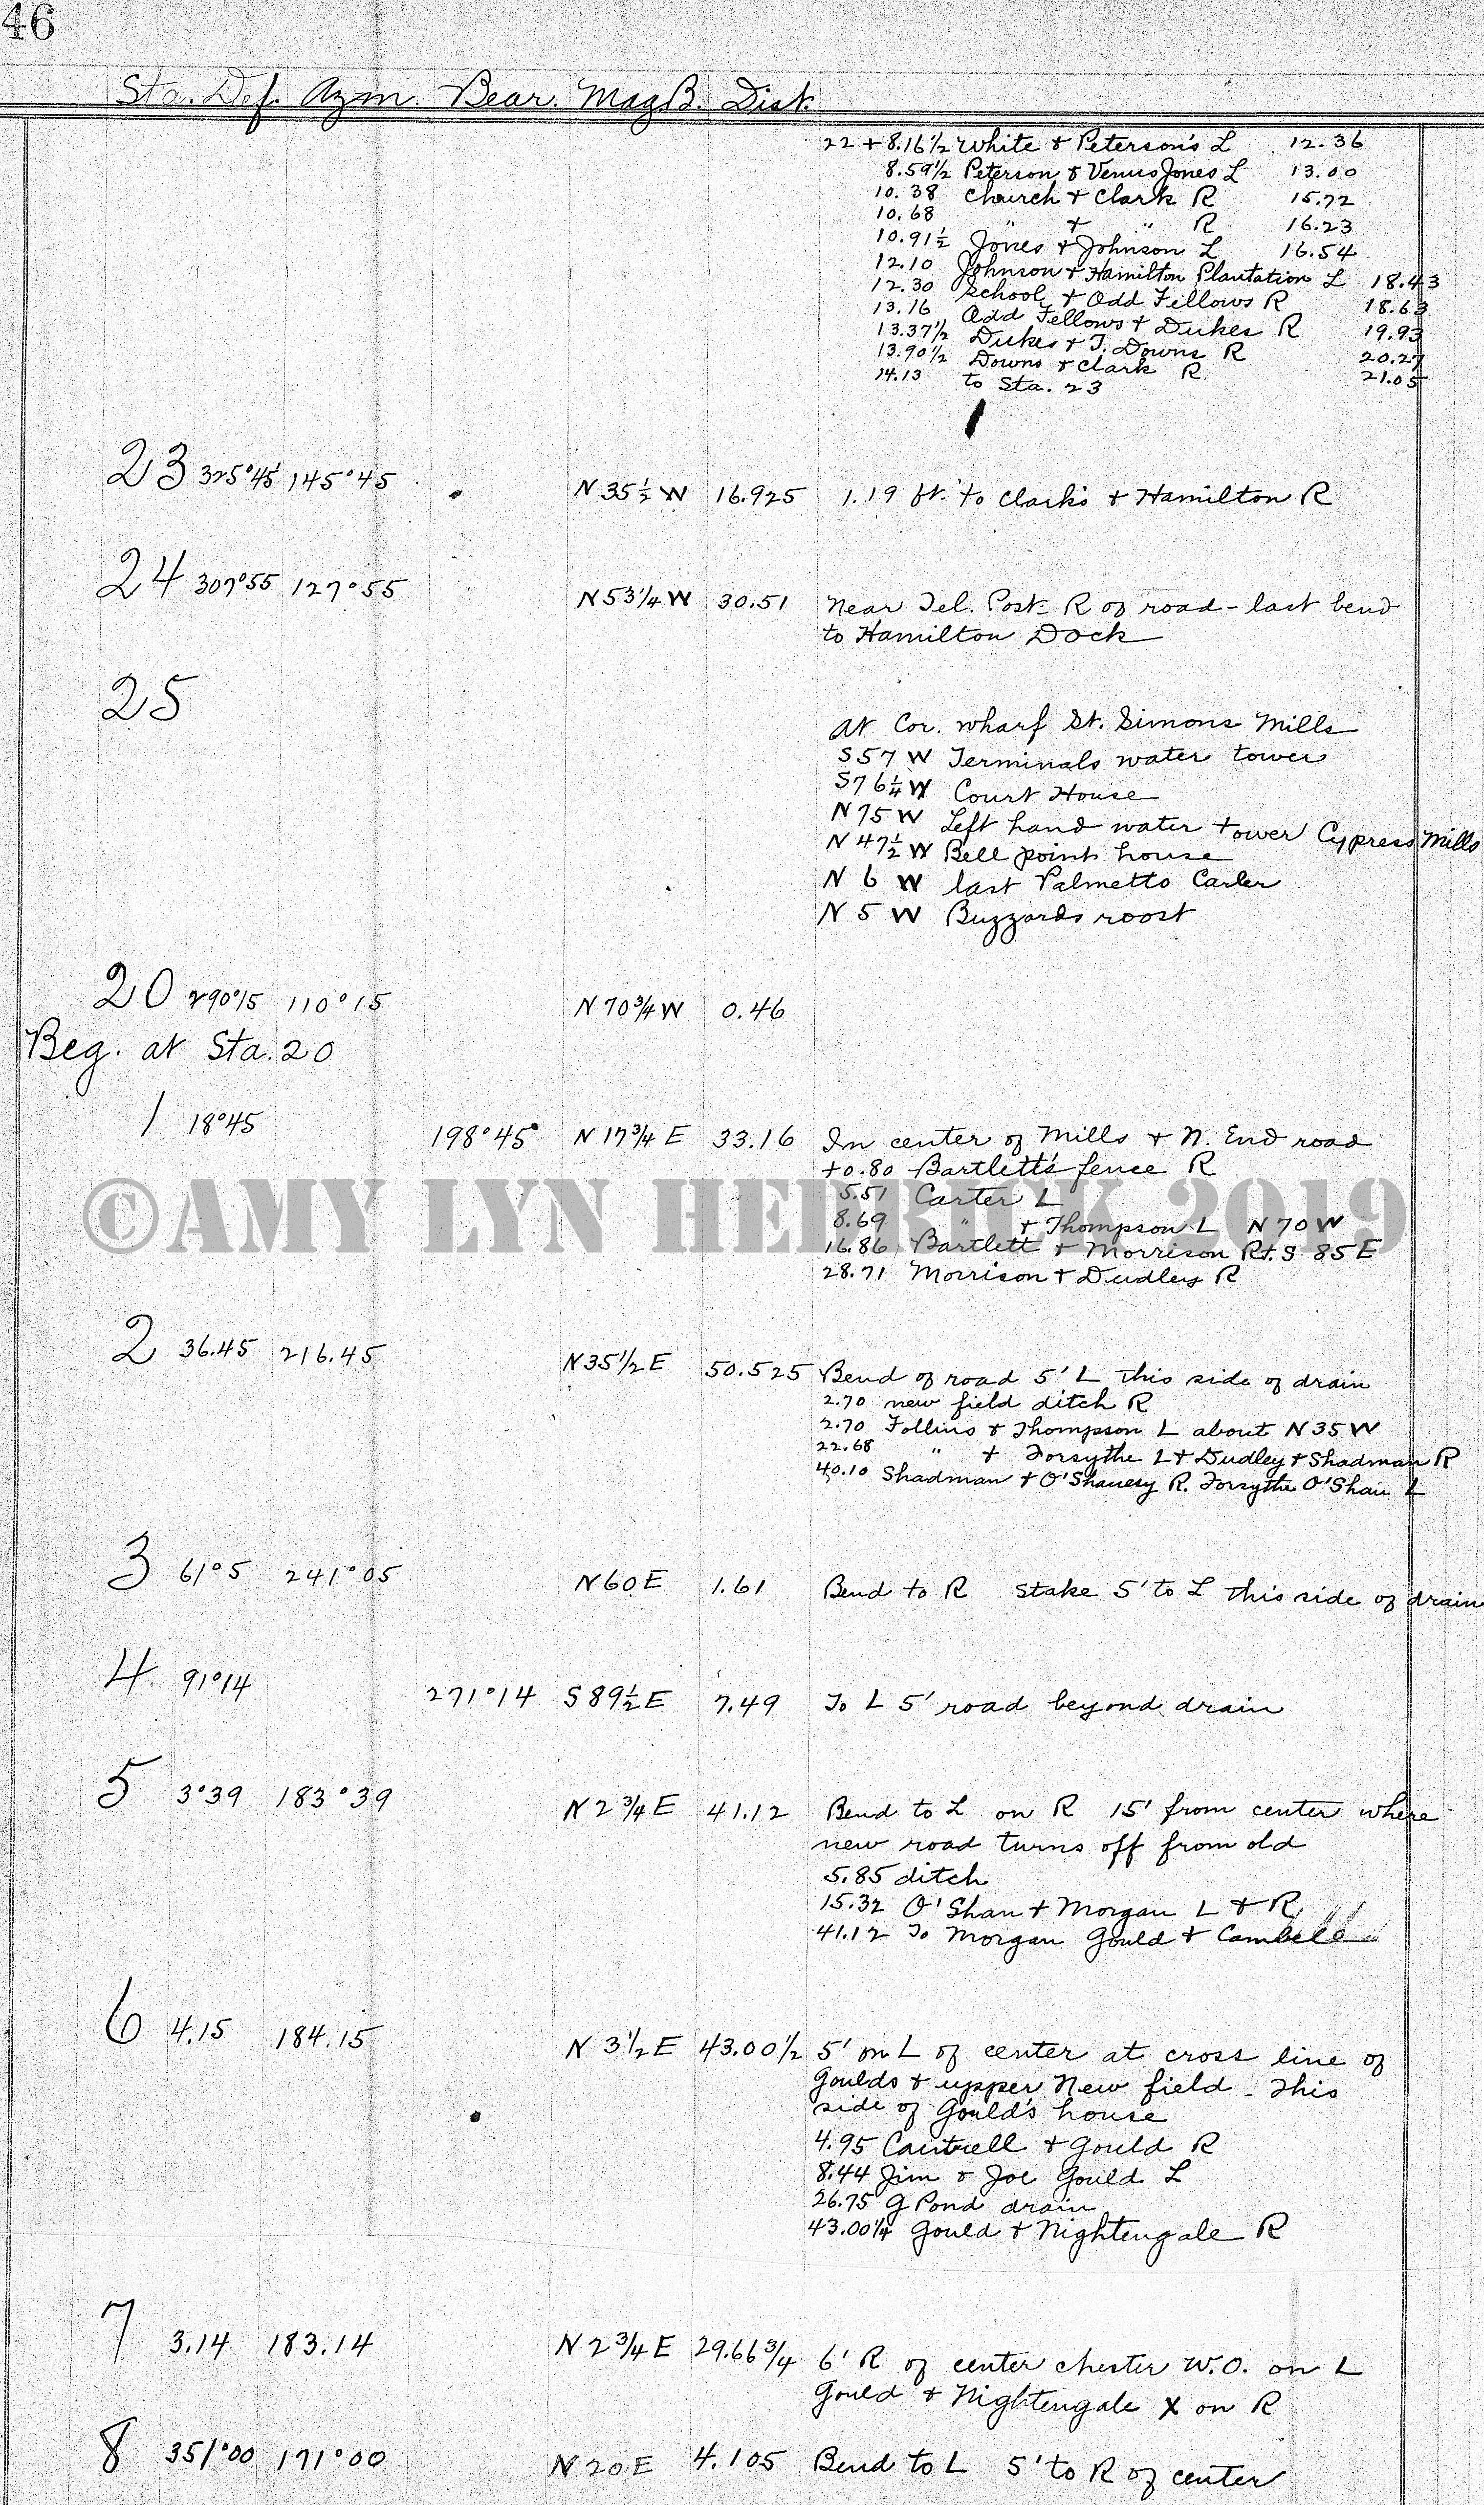 46
Sta. Def. Azm. Bear. Mag B. Dist.
22 + 8.16 1/2 White & Peterson's L 12.36
8.59 1/2 Peterson & Venus Jones L 13.00
10.38 Church & Clark R 15.72
10.68 " & " R 16.23
10.91 1/2 Jones & Johnson L 16.54
12.10 Johnson & Hamilton Plantation L 18.43
12.30 School & Odd Fellows R 18.63
13.16 Odd Fellows & Dukes R 19.93
13.37 1/2 Dukes & J. Downs R 20.27
13.90 1/2 Downs & Clark R. 21.05
14.13 to Sta. 23
23 325°45' 145°45 N 35 1/2 W 16.925 1.19 ft. to Clark's & Hamilton R
24 307°55 127°55 N 53 1/4 W 30.51 Near Tel. Post - R of road - last bend
to Hamilton Dock
25
At Cor. wharf St. Simons Mills
S 57 W Terminals water tower
S 76 1/4 W Court House
N 75 W Left hand water tower Cypress Mills
N 47 1/2 W Bell point house
N 6 W last Palmetto Carter
N 5 W Buzzards roost
20 290°15 110°15 N 70 3/4 W 0.46
Beg. at Sta. 20
1 18°45 198°45' N 17 3/4 E 33.16 In center of Mills & N. End road
+0.80 Bartlett's fence R
5.51 Carter L
8.69 " & Thompson L N 70 W
16.86 Bartlett & Morrison Rt. S 85 E
28.71 Morrison & Dudley R
©AMY LYN HEDRICK 2019
2 36.45 216.45 N 35 1/2 E 50.525 Bend of road 5' L this side of drain
2.70 new field ditch R
2.70 Follins & Thompson L about N 35 W
22.68 " & Forsythe L & Dudley & Shadman R
40.10 Shadman & O'Shanesy R. Forsythe O'Shan L
3 61°5 241°05 N 60 E 1.61 Bend to R stake 5' to L this side of drain
4 91°14 271°14 S 89 1/2 E 7.49 To L 5' road beyond drain
5 3°39 183°39 N 2 3/4 E 41.12 Bend to L on R 15' from center where
new road turns off from old
5.85 ditch
15.32 O'Shan & Morgan L & R
41.12 To Morgan Gould & Cambell
6 4.15 184.15 N 3 1/2 E 43.00 1/2 5' on L of center at cross line of
Goulds & upper New field - This
side of Gould's house
4.95 Cantrell & Gould R
8.44 Jim & Joe Gould L
26.75 G Pond drain
43.00 1/4 Gould & Nightengale R
7 3.14 183.14 N 2 3/4 E 29.66 3/4 6' R of center Chester W.O. on L
Gould & Nightengale X on R
8 351°00 171°00 N 20 E 4.105 Bend to L 5' to R of center